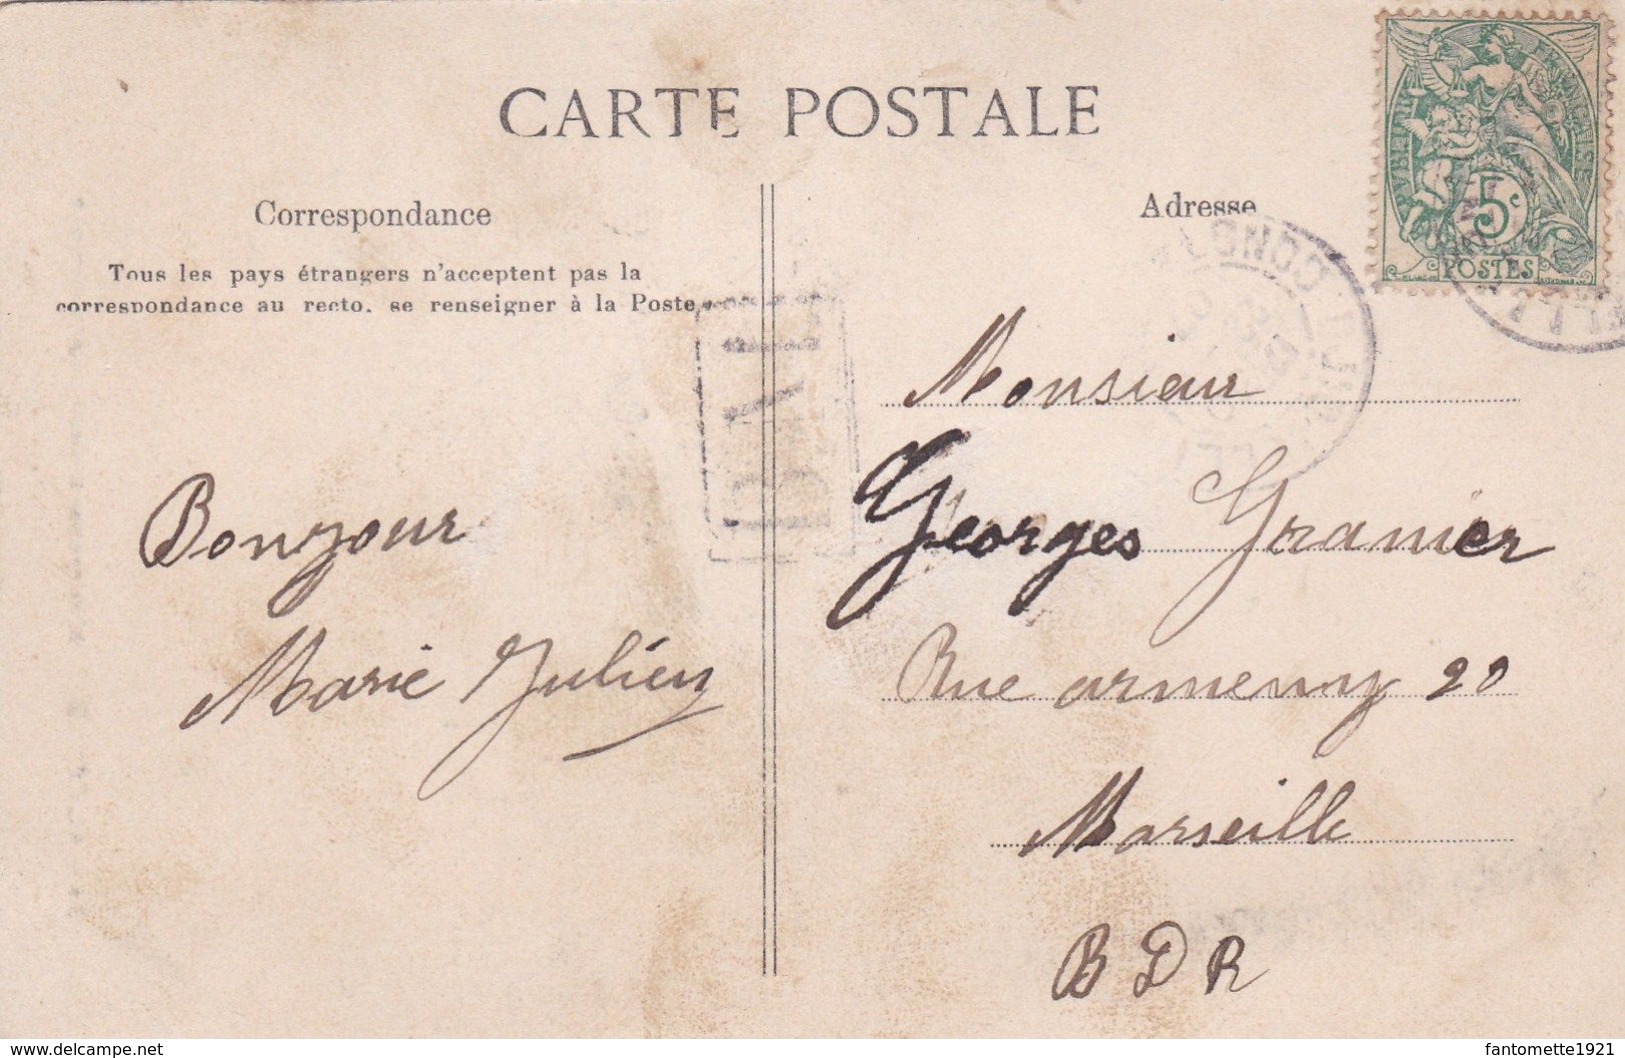 CARTE POSTALE
Correspondance
Tous les pays étrangers n'acceptent pas la
correspondance au recto, se renseigner à la Poste
Bonjour
Marie Julien
Adresse
5c
POSTES
Monsieur
Georges Granier
Rue armeny 20
Marseille
BDR
www.delcampe.net
fantomette1921